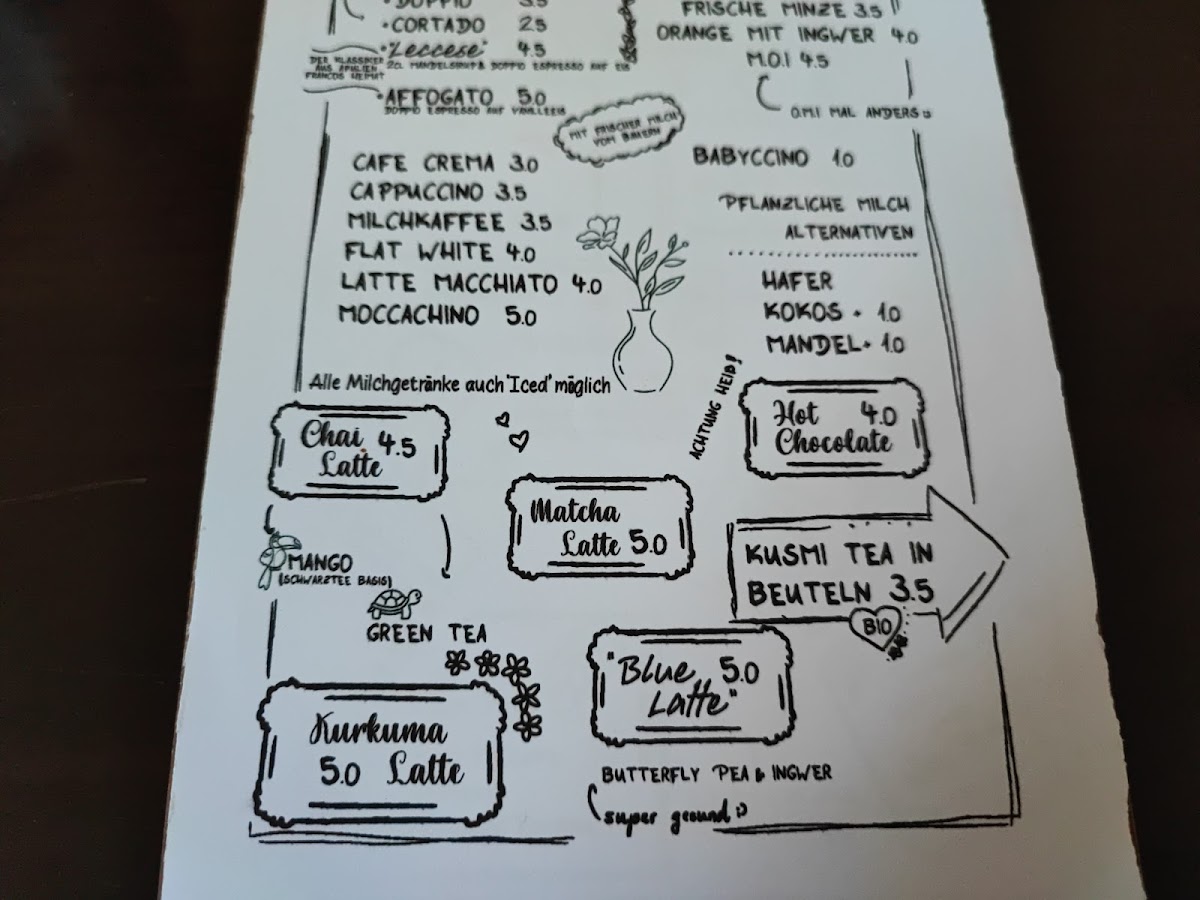 DOPPIO 3.5
CORTADO 2.5
"Leccese" 4.5
2CL MANDELSIRUP & DOPPIO ESPRESSO AUF EIS
DER KLASSIKER
AUS APULIEN
FRANCOS HEIMAT
AFFOGATO 5.0
DOPPIO ESPRESSO AUF VANILLEEIS
FRISCHE MINZE 3.5
ORANGE MIT INGWER 4.0
M.O.I 4.5
O.M.I MAL ANDERS
MIT FRISCHER MILCH
VOM BAUERN
CAFE CREMA 3.0
CAPPUCCINO 3.5
MILCHKAFFEE 3.5
FLAT WHITE 4.0
LATTE MACCHIATO 4.0
MOCCACHINO 5.0
Alle Milchgetränke auch 'Iced' möglich
BABYCCINO 1.0
PFLANZLICHE MILCH
ALTERNATIVEN
HAFER
KOKOS + 1.0
MANDEL+ 1.0
ACHTUNG HEIß!
Chai 4.5
Latte
Hot 4.0
Chocolate
Matcha
Latte 5.0
MANGO
(SCHWARZTEE BASIS)
GREEN TEA
KUSMI TEA IN
BEUTELN 3.5
BIO
"Blue 5.0
Latte"
Kurkuma
5.0 Latte
BUTTERFLY PEA & INGWER
super gesund :)